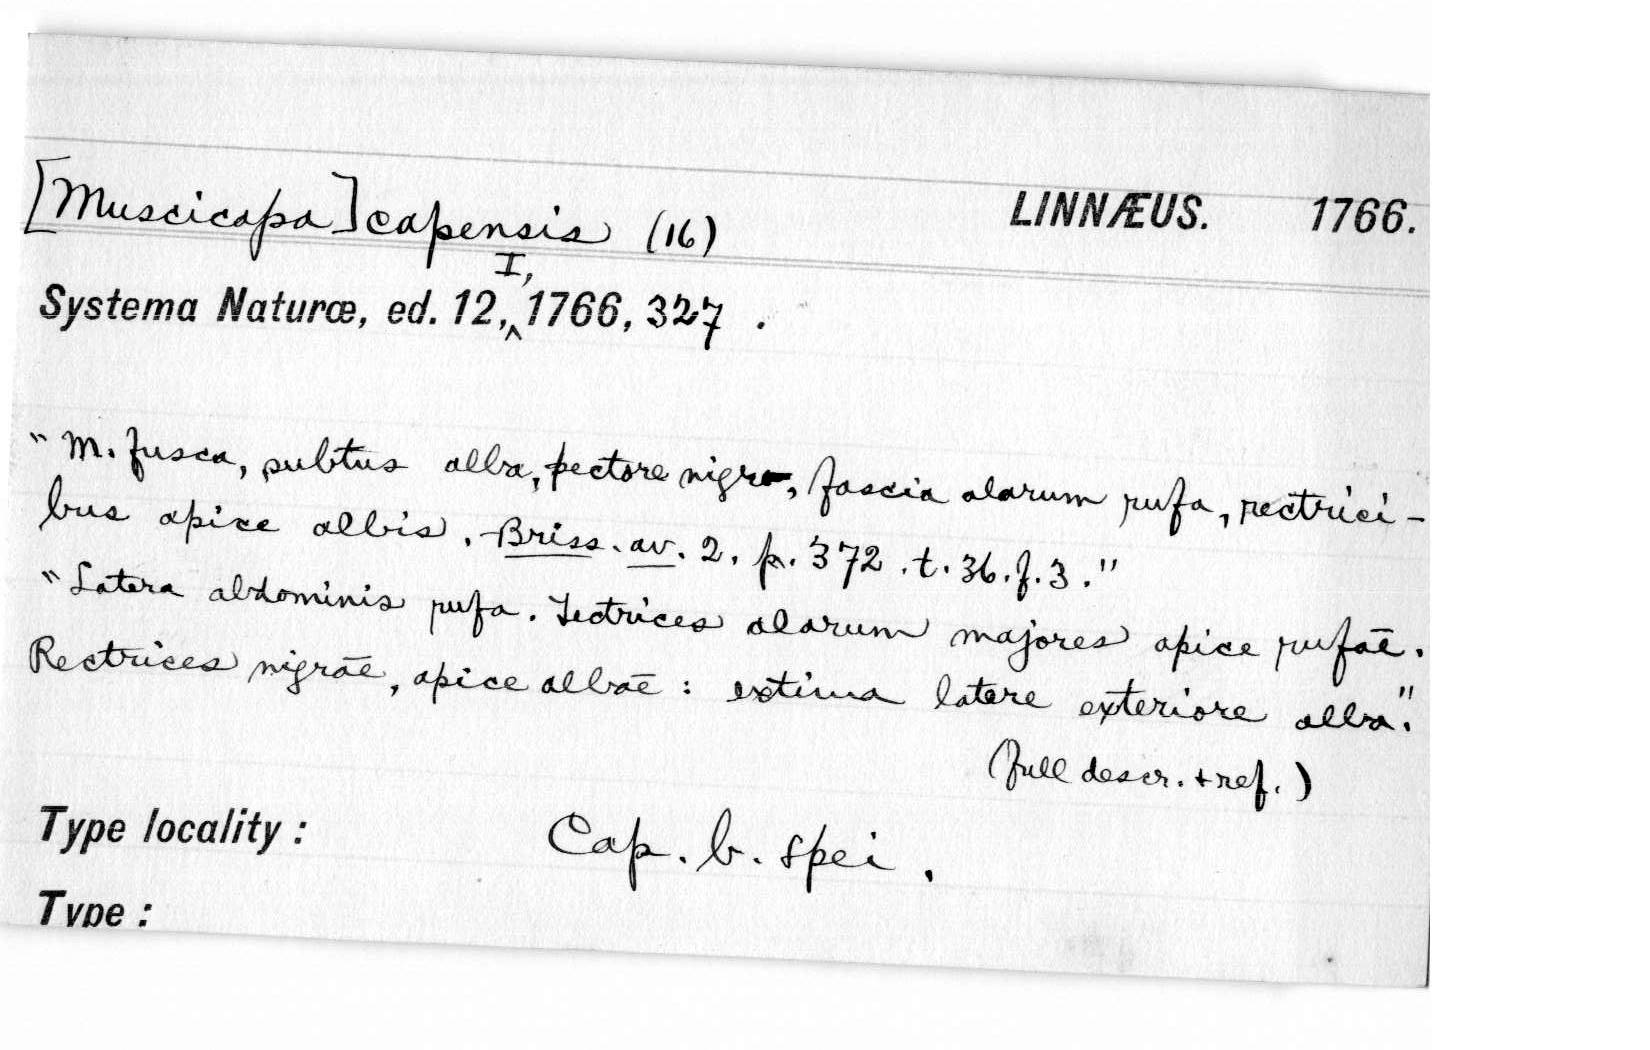 [Muscicapa] capensis (16) LINNÆUS. 1766.
Systema Naturæ, ed. 12, I, 1766, 327 .
"M. fusca, subtus alba, pectore nigro, fascia alarum rufa, rectrici-
bus apice albis. - Briss. av. 2. p. 372. t. 36. f. 3."
"Latera abdominis rufa. Tectrices alarum majores apice rufae.
Rectrices nigrae, apice albae : extima latere exteriore alba."
(full descr. + ref.)
Type locality : Cap. b. spei .
Type :